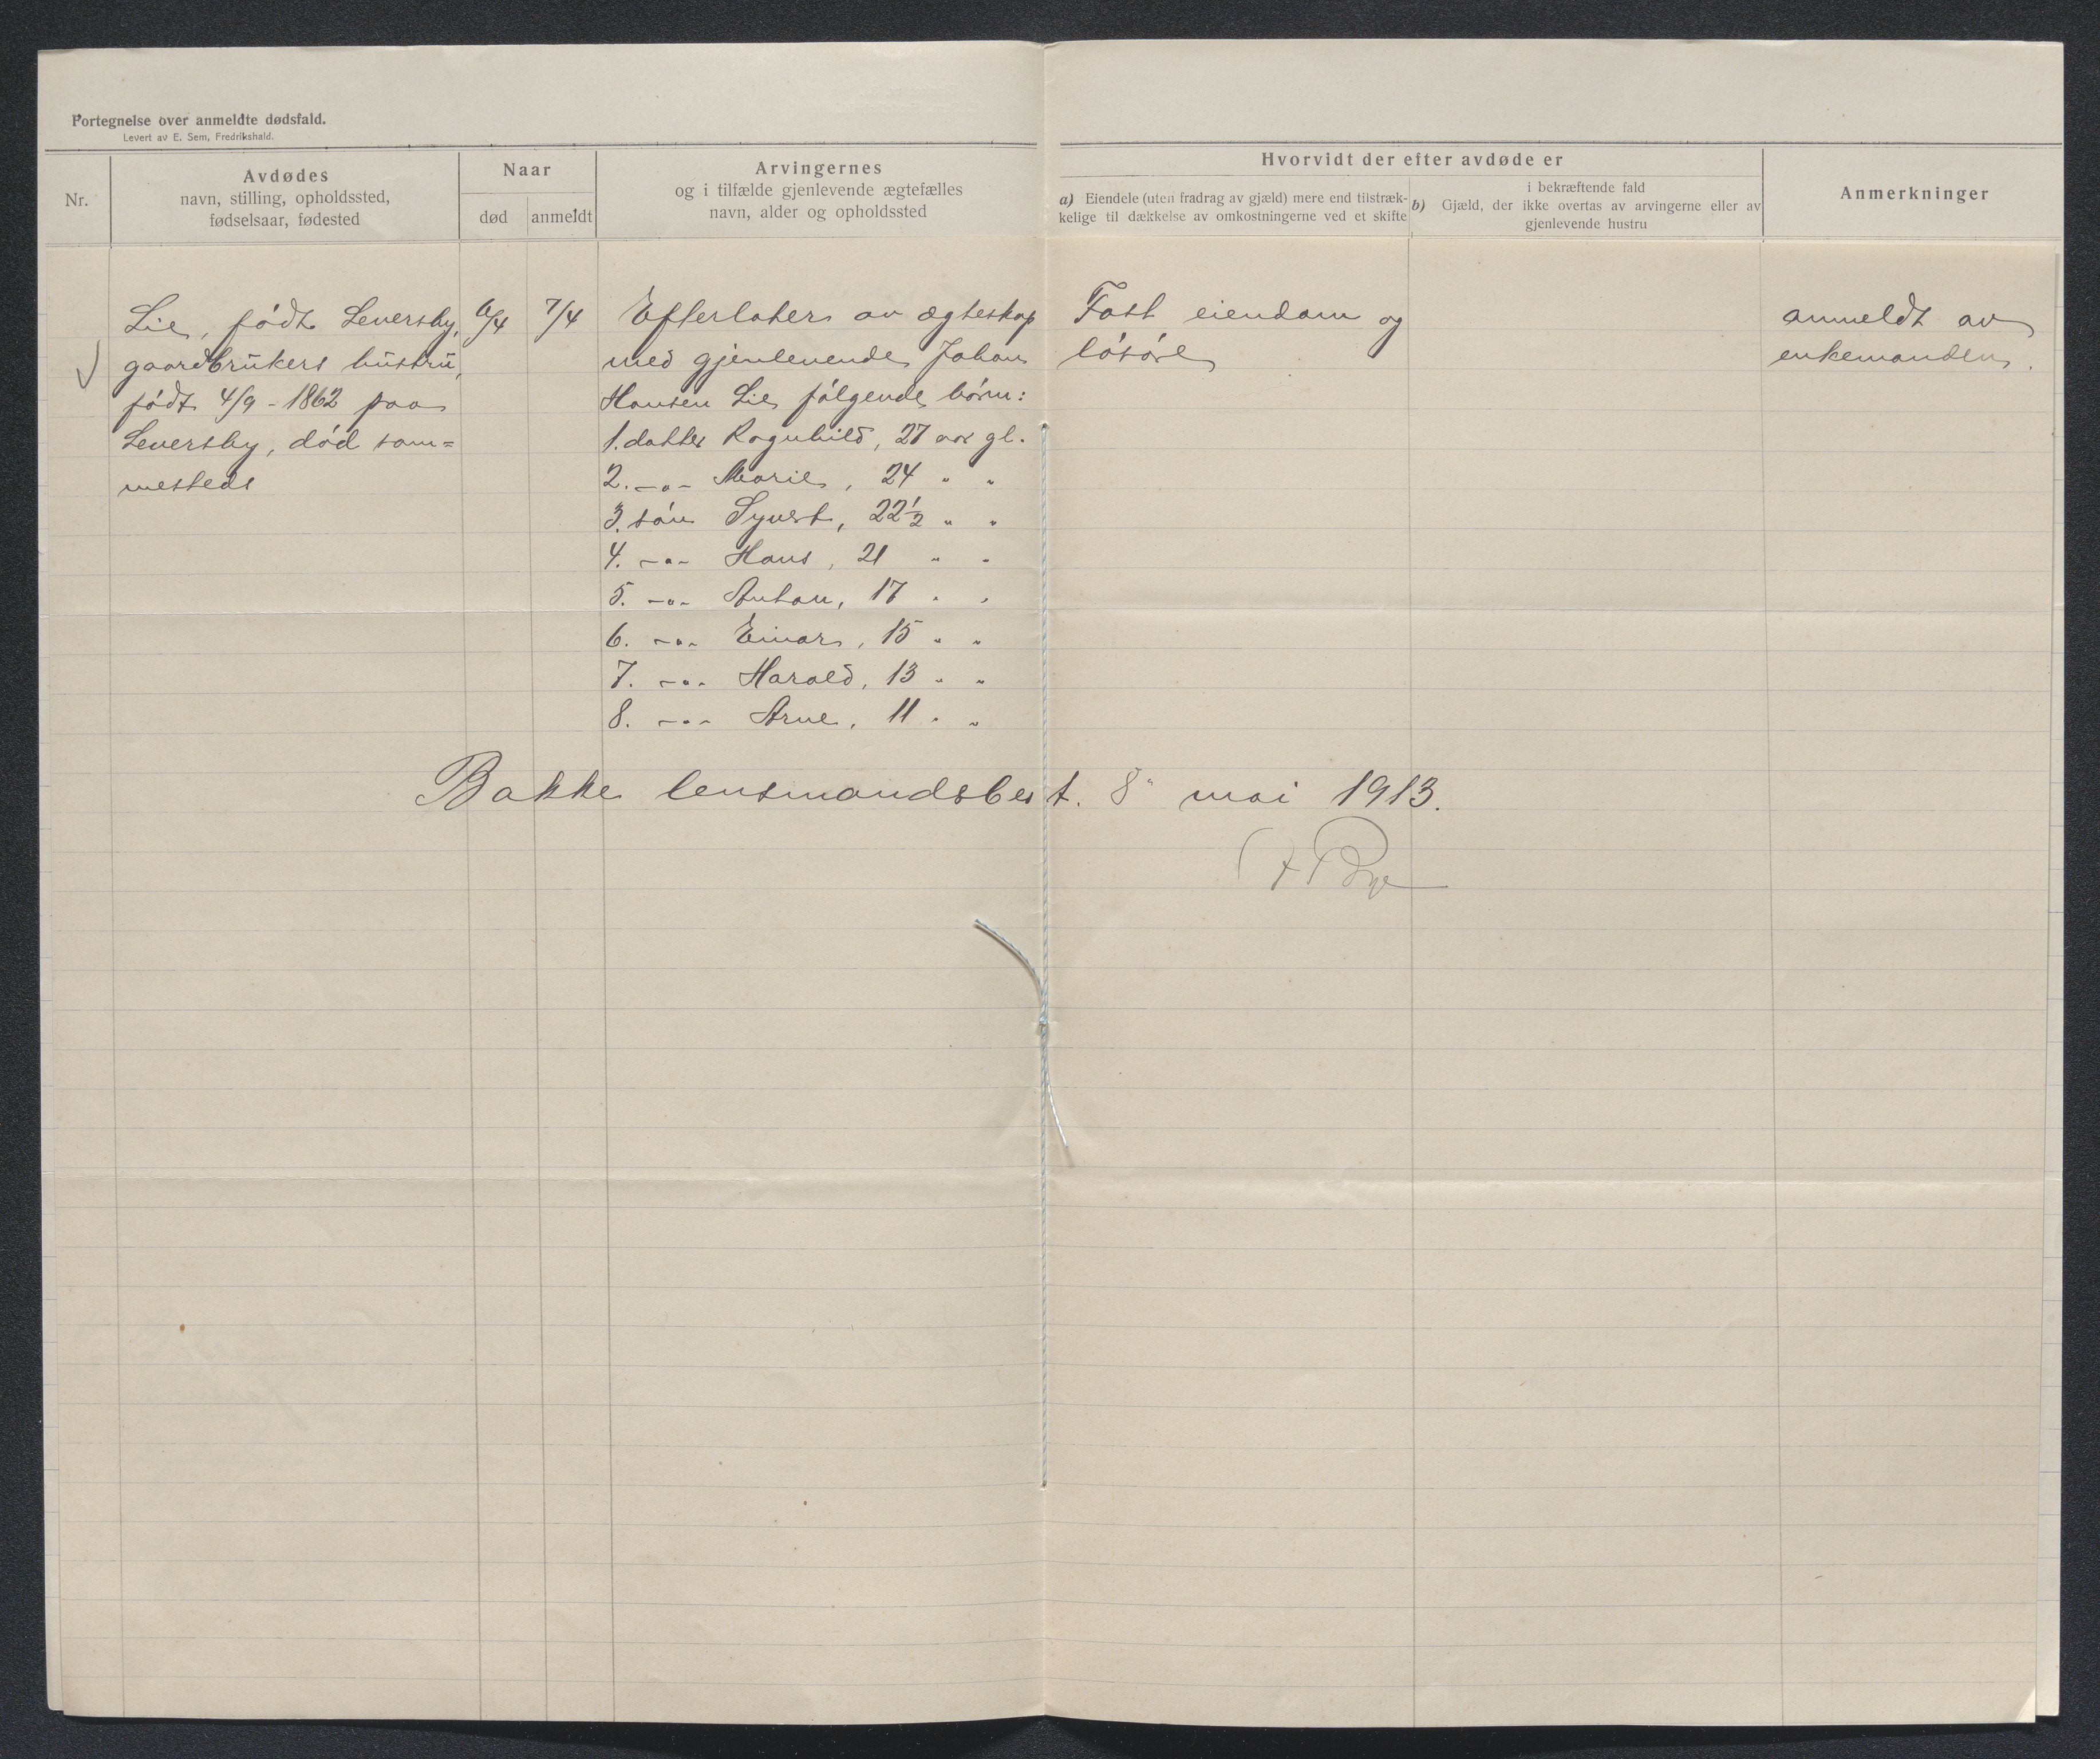 Fortegnelse over anmeldte dødsfald.
Levert av E. Sem, Fredrikshald.
Nr.
Avdødes
navn, stilling, opholdssted,
fødselsaar, fødested
Naar
død
anmeldt
Arvingernes
og i tilfælde gjenlevende ægtefælles
navn, alder og opholdssted
Hvorvidt der efter avdøde er
a) Eiendele (uten fradrag av gjæld) mere end tilstræk-
kelige til dækkelse av omkostningerne ved et skifte
i bekræftende fald
b) Gjæld, der ikke overtas av arvingerne eller av
gjenlevende hustru
Anmerkninger
Lie, født Leversby,
gaardbrukers hustru,
født 4/9 - 1862 paa
Leversby, død sam=
mesteds
6/4
7/4
Efterlater av ægteskap
med gjenlevende Johan
Hansen Lie følgende børn:
1. datter Ragnhild, 27 aar gl.
2. -"- Marie, 24 " "
3. søn Syvert, 22 1/2 " "
4. -"- Hans, 21 " "
5. -"- Anton, 17 " "
6. -"- Einar, 15 " "
7. -"- Harald, 13 " "
8. -"- Arne, 11 " "
Fast eiendom og
løsøre
anmeldt av
enkemanden.
Bakke lensmandsbest. 8" mai 1913.